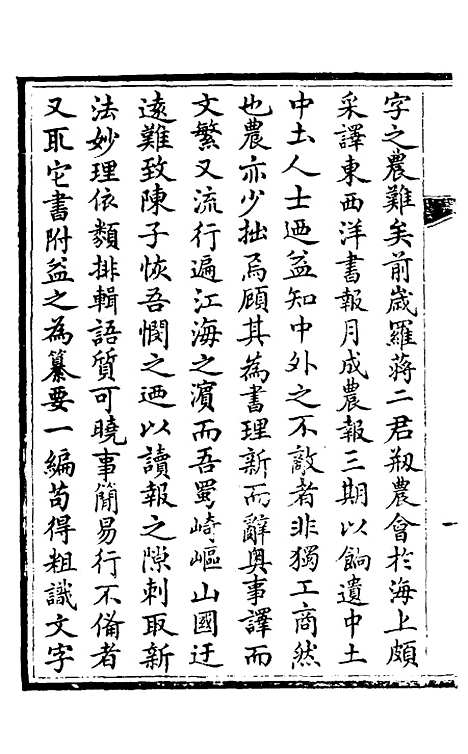 字之農難矣前歲羅蔣二君剏農會於海上頗
采譯東西洋書報月成農報三期以餉遺中土
中土人士迺益知中外之不敵者非獨工商然
也農亦少拙焉顧其為書理新而辭奧事譯而
文繁又流行遍江海之濱而吾蜀崎嶇山國迂
遠難致陳子恢吾憫之迺以讀報之隙刺取新
法妙理依類排輯語質可曉事簡易行不備者
又取它書附益之為纂要一編茍得粗識文字
一